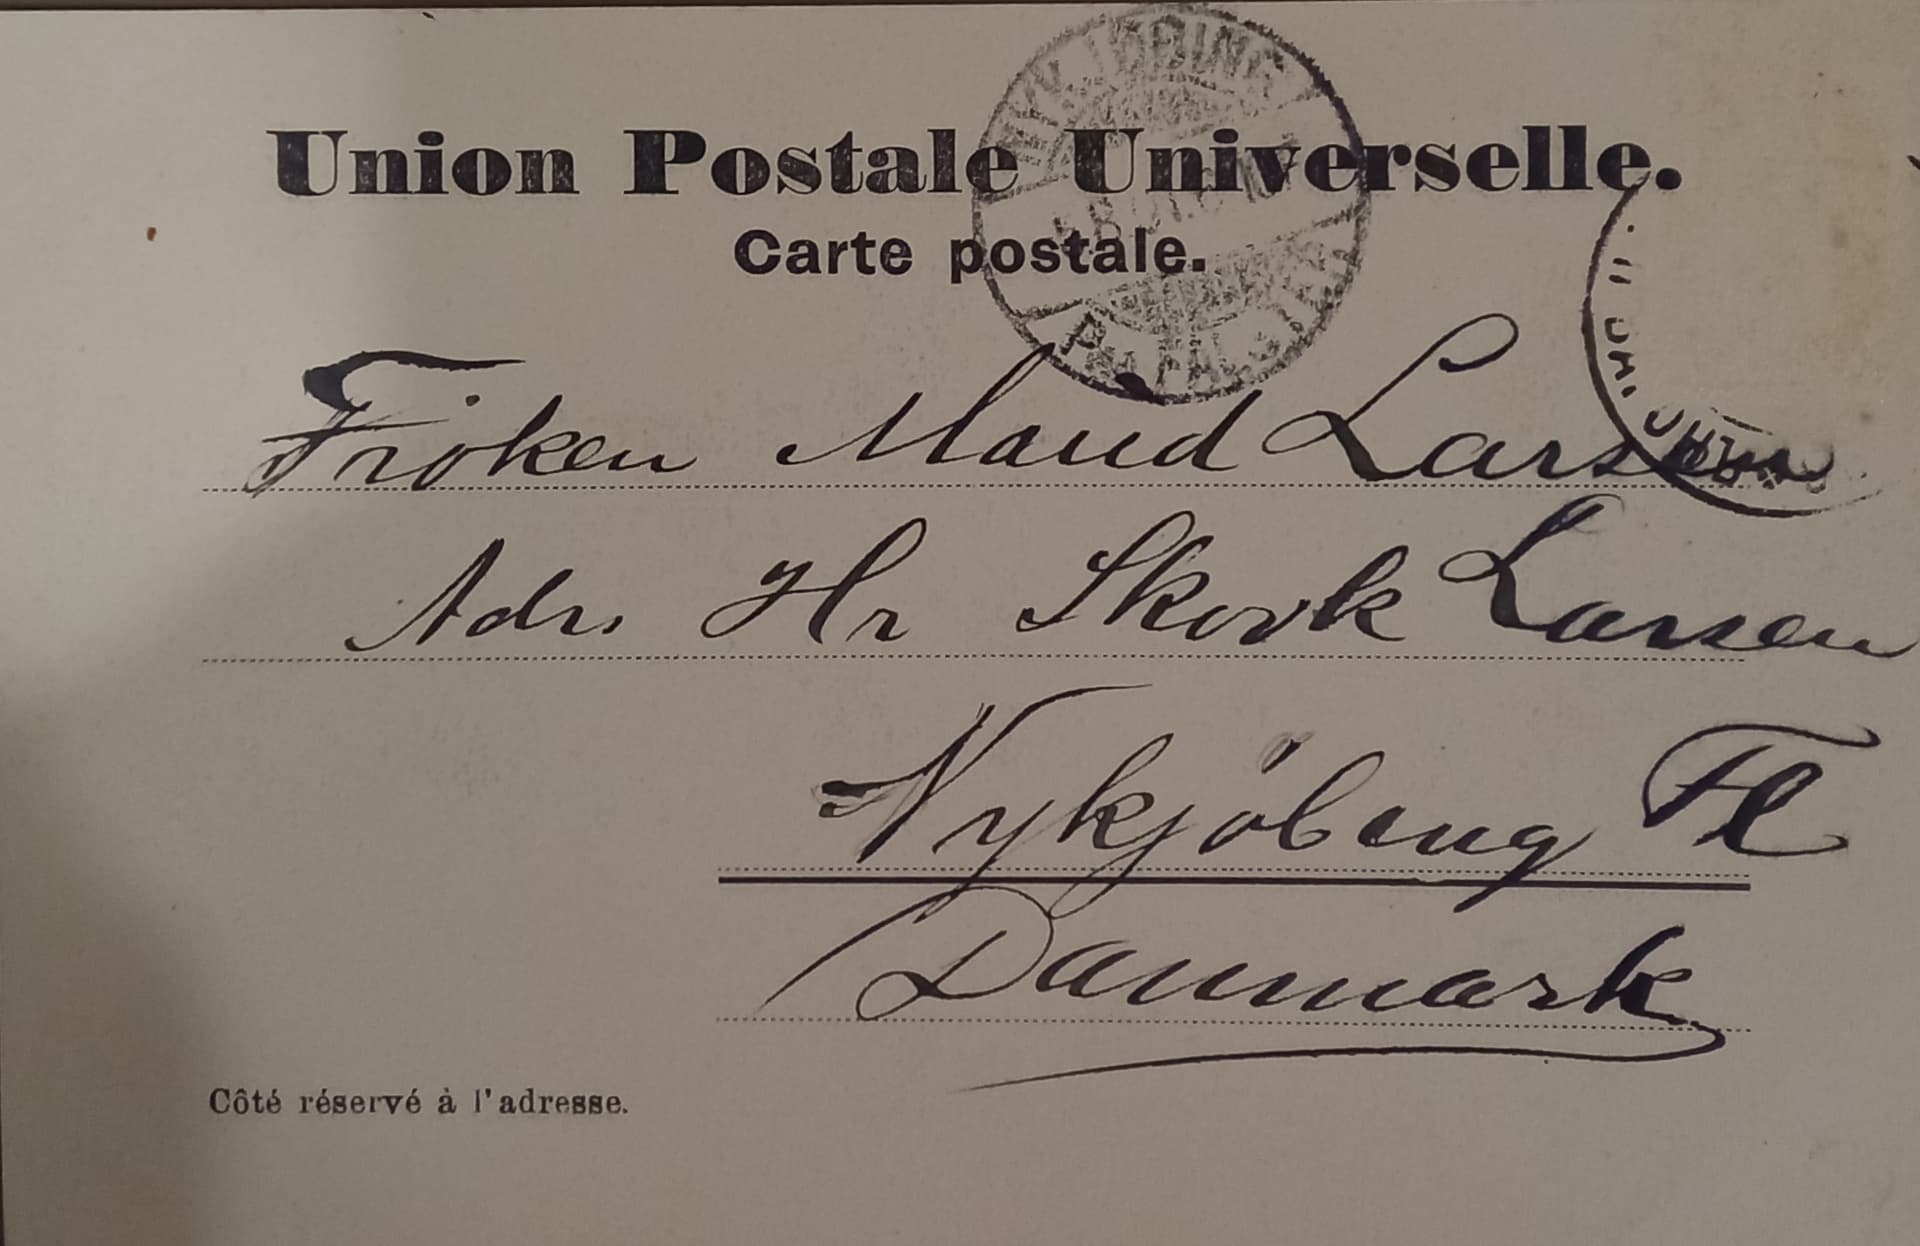 Union Postale Universelle.
Carte postale.
NYKJÖBING
PAA FALSTER
Fröken Maud Larsen
Adr. Hr Skovk Larsen
Nykjöbing Fl
Danmark
Côté réservé à l'adresse.